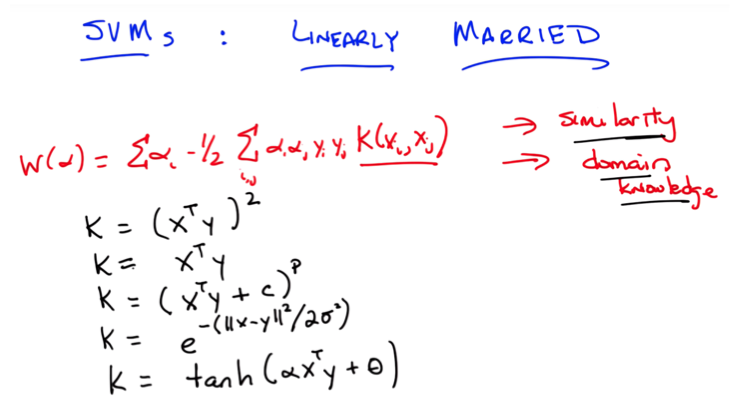 SVMs : LINEARLY MARRIED
W(α) = Σαᵢ - 1/2 Σᵢ,ⱼ αᵢαⱼ yᵢ yⱼ K(xᵢ, xⱼ) → similarity
→ domain knowledge
K = (xᵀy)²
K = xᵀy
K = (xᵀy + c)ᵖ
K = e^-(||x-y||²/2σ²)
K = tanh(αxᵀy + θ)